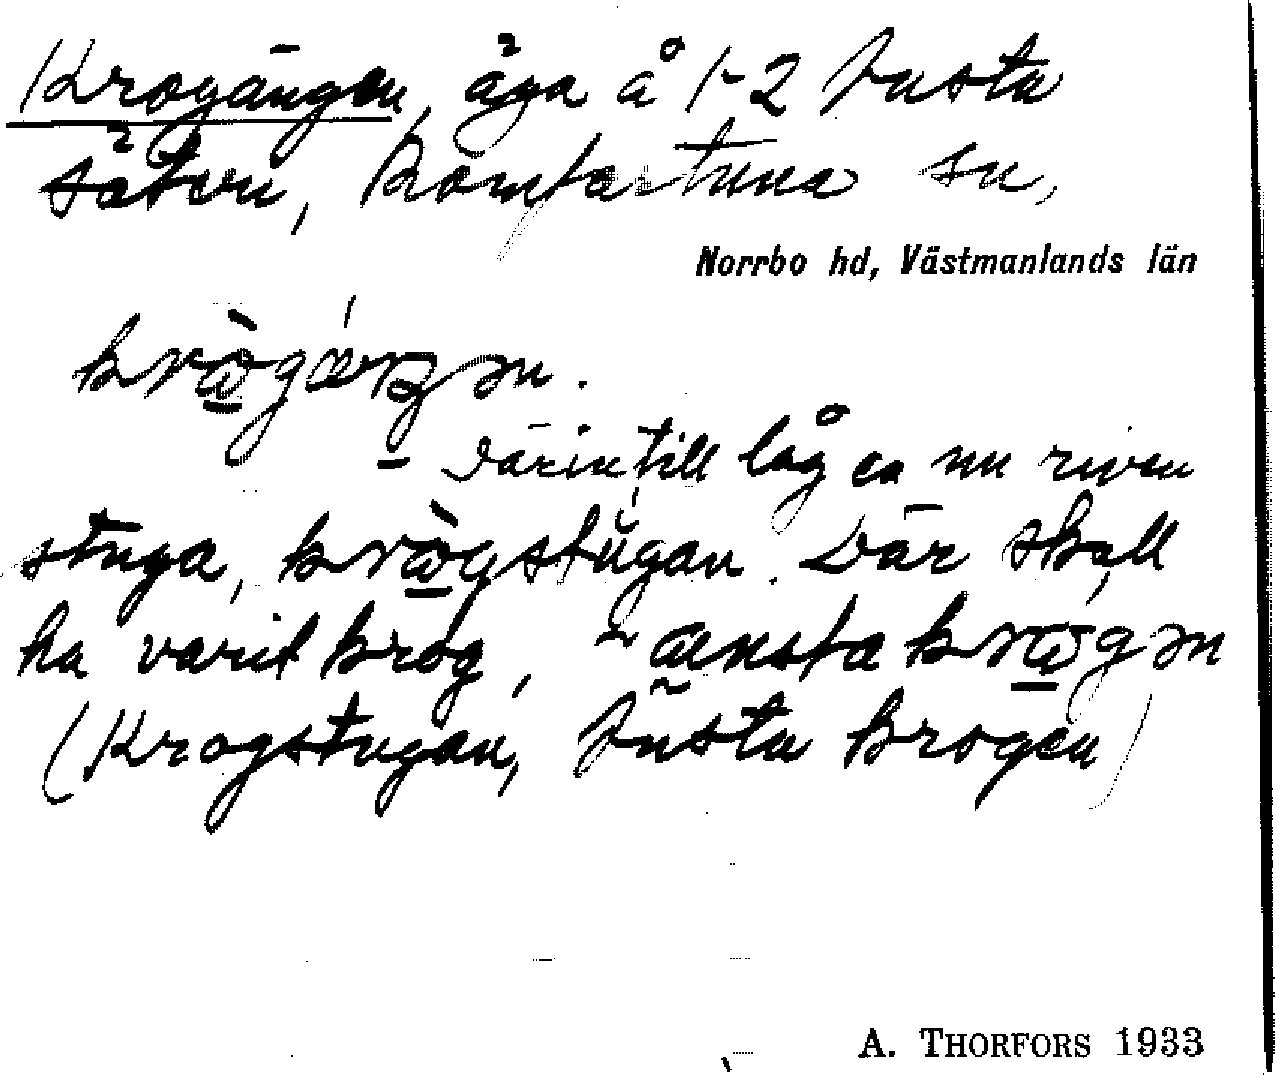 Krogängen, äga å 1-2 Vusta
säteri, Romfartuna sn,
Norrbo hd, Västmanlands län
Därintill låg en nu riven
stuga, krògstùgan. Där skall
ha varit krog,
(Krogstugan, Vusta Krogen)
A. THORFORS 1933